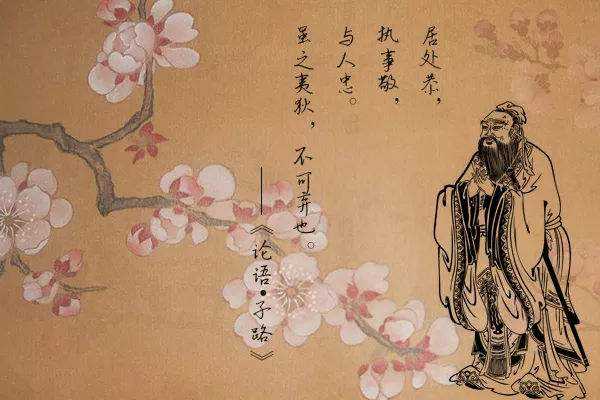 居处恭，
执事敬，
与人忠。
虽之夷狄，不可弃也。
——《论语·子路》